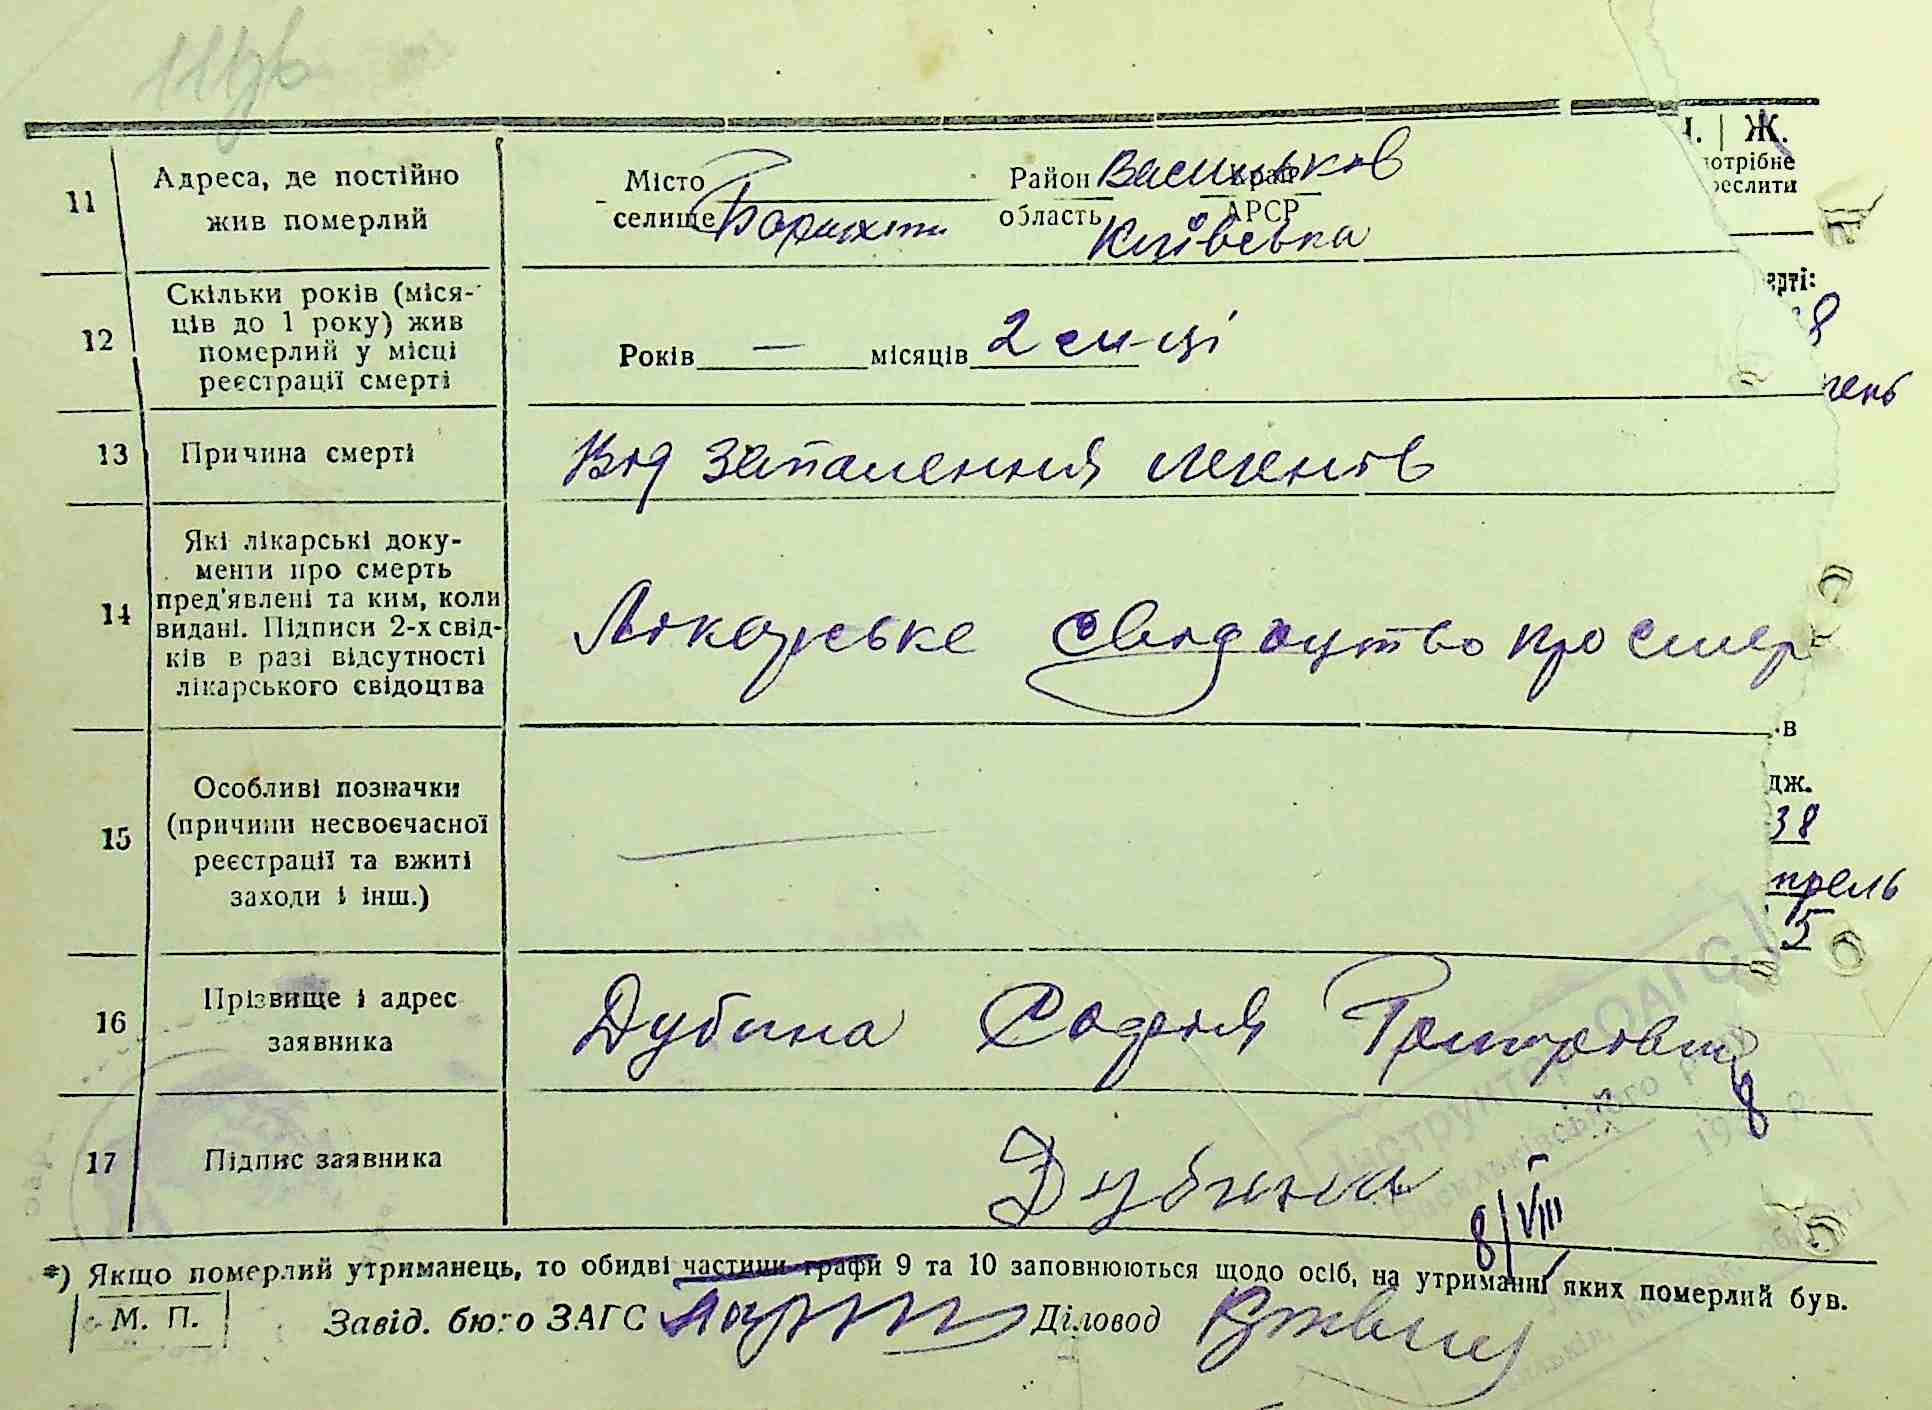 Ж.
отрібне
реслити
11 Адреса, де постійно жив померлий
Місто Район Васильков Край
селище область Київська АРСР
12 Скільки років (міся-
ців до 1 року) жив
померлий у місці
реєстрації смерті
Років — місяців 2 ем-ці
ерті:
8
ень
13 Причина смерті
Від запалення легенів
14 Які лікарські доку-
менти про смерть
пред'явлені та ким, коли
видані. Підписи 2-х свід-
ків в разі відсутності
лікарського свідоцтва
Лікарське свідоцтво про смер
в
15 Особливі позначки
(причини несвоєчасної
реєстрації та вжиті
заходи і інш.)
дж.
38
прель
5
16 Прізвище і адрес
заявника
Дубина Софія
17 Підпис заявника
Дубина
8/VIII
*) Якщо померлий утриманець, то обидві частини графи 9 та 10 заповнюються щодо осіб, на утриманні яких померлий був.
М. П. Завід. бюро ЗАГС Діловод
Інструктор ОАГС
Васильківського р